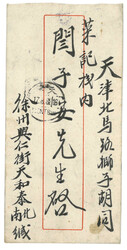 天津北馬路獅子胡同
葉記棧內
閻子安先生啓
徐州興仁街天和泰北
南緘